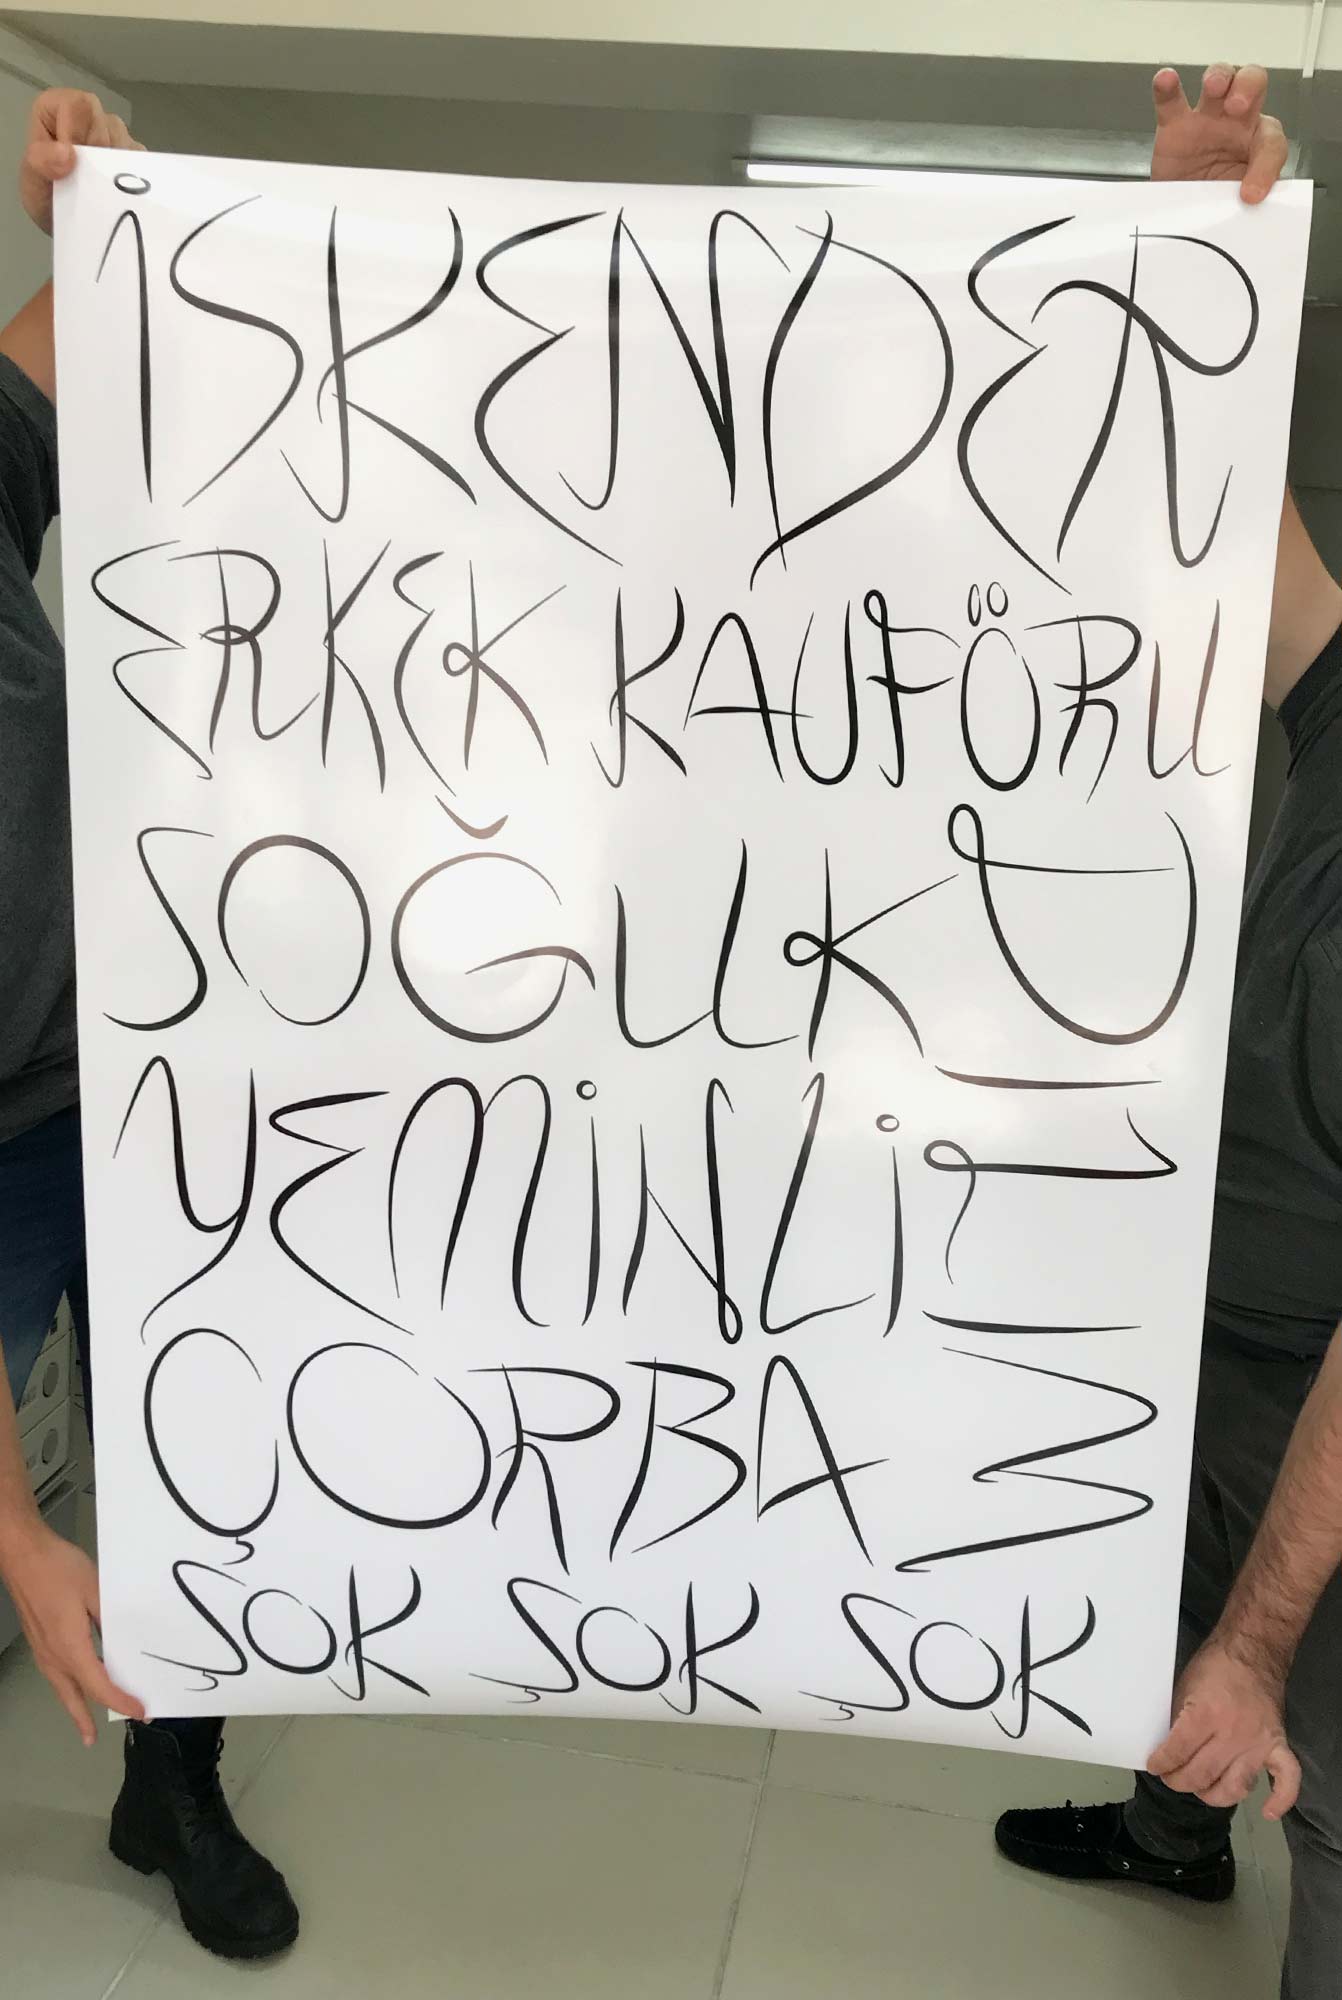 İSKENDER
ERKEK KAUFÖRU
SOĞUK
YEMİNLİ
ÇORBA
DILIM
ŞOK ŞOK ŞOK